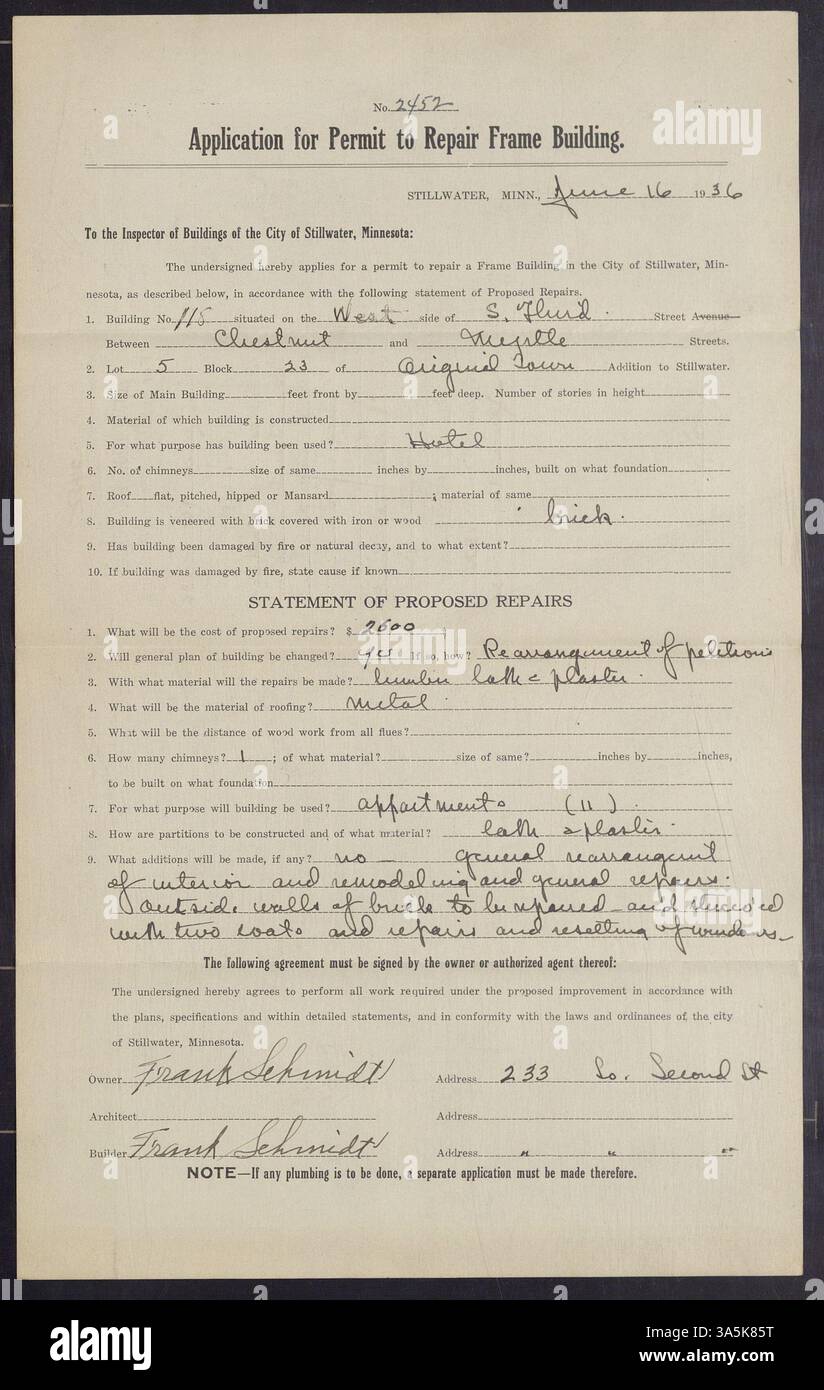 No. 2452
Application for Permit to Repair Frame Building.
STILLWATER, MINN., June 16 1936
To the Inspector of Buildings of the City of Stillwater, Minnesota:
The undersigned hereby applies for a permit to repair a Frame Building in the City of Stillwater, Min-
nesota, as described below, in accordance with the following statement of Proposed Repairs.
1. Building No. 115 situated on the West side of S. Third Street Avenue
Between Chestnut and Myrtle Streets.
2. Lot 5 Block 23 of Original Town Addition to Stillwater.
3. Size of Main Building feet front by feet deep. Number of stories in height
4. Material of which building is constructed
5. For what purpose has building been used? Hotel
6. No. of chimneys size of same inches by inches, built on what foundation
7. Roof flat, pitched, hipped or Mansard ; material of same
8. Building is veneered with brick covered with iron or wood brick.
9. Has building been damaged by fire or natural decay, and to what extent?
10. If building was damaged by fire, state cause if known
STATEMENT OF PROPOSED REPAIRS
1. What will be the cost of proposed repairs? $ 2600
2. Will general plan of building be changed? yes If so, how? Rearrangement of petitions
3. With what material will the repairs be made? lumber lath & plaster.
4. What will be the material of roofing? metal
5. What will be the distance of wood work from all flues?
6. How many chimneys? 1 ; of what material? size of same? inches by inches,
to be built on what foundation
7. For what purpose will building be used? appartments (11)
8. How are partitions to be constructed and of what material? lath & plaster.
9. What additions will be made, if any? no — general rearrangement
of interior and remodeling and general repairs.
Outside walls of brick to be repaired and stuccoed
with two coats and repairs and resetting of windows
The following agreement must be signed by the owner or authorized agent thereof:
The undersigned hereby agrees to perform all work required under the proposed improvement in accordance with
the plans, specifications and within detailed statements, and in conformity with the laws and ordinances of the city
of Stillwater, Minnesota.
Owner Frank Schmidt Address 233 So. Second St
Architect Address
Builder Frank Schmidt Address " " "
NOTE—If any plumbing is to be done, a separate application must be made therefore.
alamy
Image ID: 3A5K85T
www.alamy.com